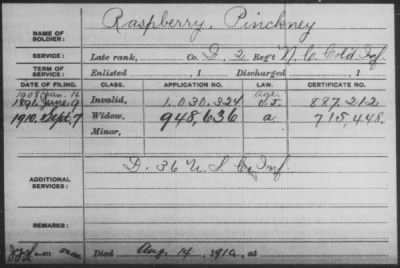 Raspberry, Pinckney
NAME OF SOLDIER:
SERVICE: Late rank, Co. D, 2 Reg't N. C. Cold Inf.
TERM OF SERVICE: Enlisted , 1 Discharged , 1
DATE OF FILING. CLASS. APPLICATION NO. LAW. CERTIFICATE NO.
1908 Jan. 16 Age
1891 June 9 Invalid, 1,030,324 887,212
1910. Sept. 7 Widow, 948,636 a 715,448.
Minor,
ADDITIONAL SERVICES: D. 36 U. S. C. Inf.
REMARKS:
Died Aug. 14, 1910, at